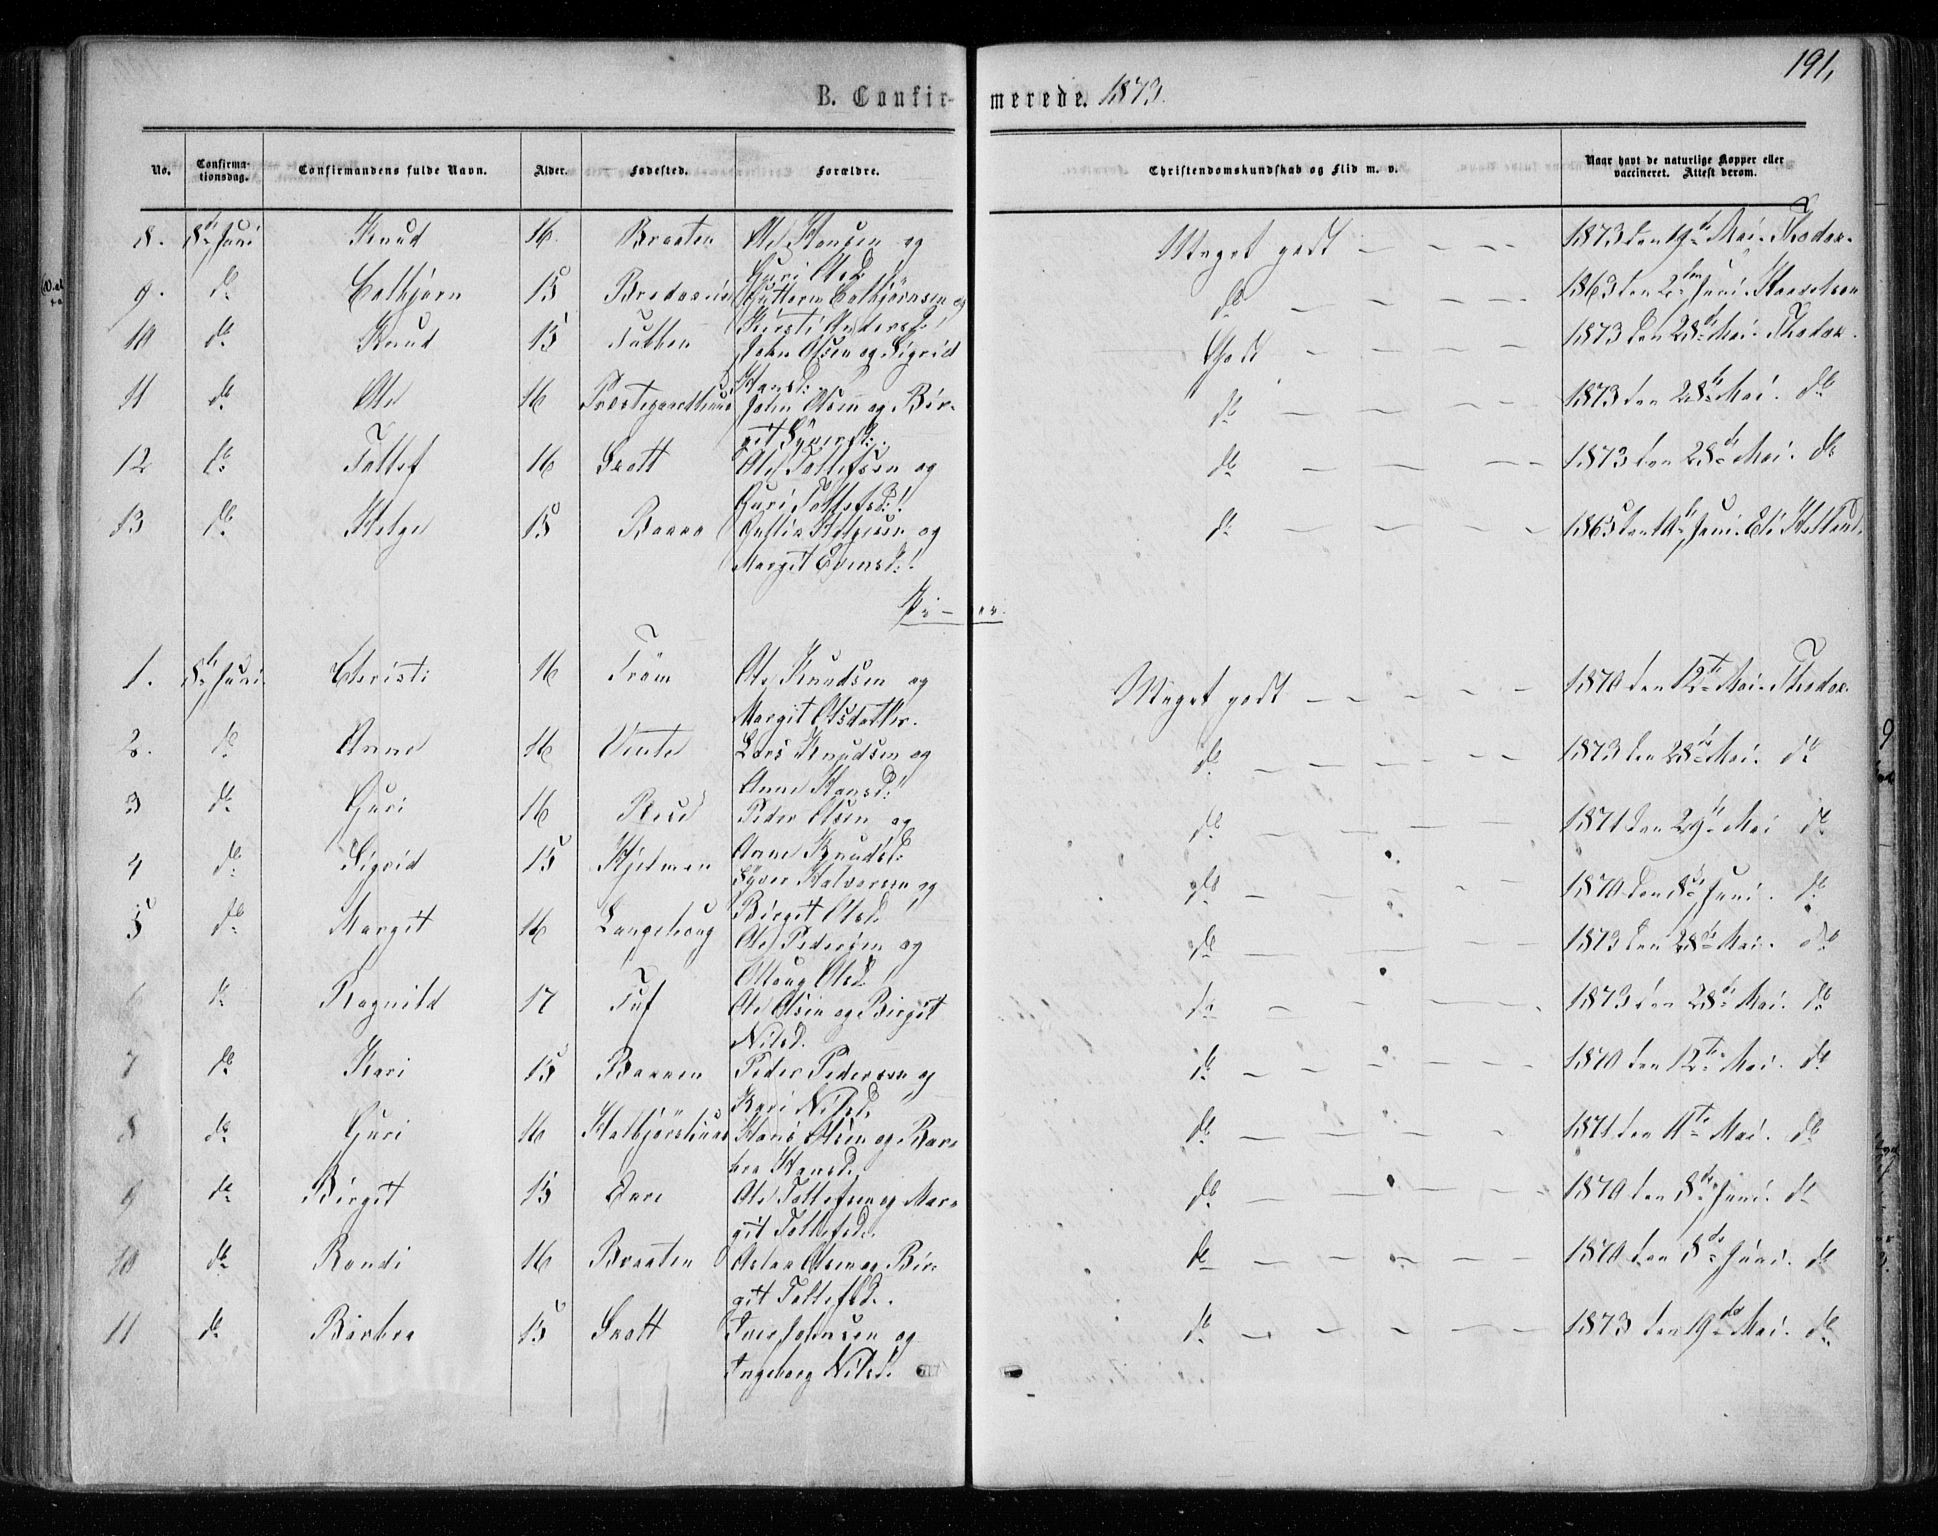 191,
B. Confirmerede. 1873.
No. Confirmationsdag. Confirmandens fulde Navn. Alder. Fødested. Forældre. Christendomskundskab og Flid m. v. Naar havt de naturlige Kopper eller vaccineret. Attest derom.
8. 8de Juni Knud 16. Braaten Ole Hansen og Guri Olsd. Meget godt — — — — 1873 den 19de Mai. Thodox.
9. do 15 Guttorm Colbjørnsen og Kirsti Andersd: do — — — — 1863 den 2den Juni.
10 do Knud 15 John Olsen og Sigrid Hansd: Godt — — — — 1873 den 28de Mai. Thodox.
11 do Ole 16 Præstegaardshuus John Olsen og Birgit Syversd: do — — — — 1873 den 28de Mai. do
12 do Tollef 16 Grøtt Ole Tollefsen og Guri Tollefsd: do — — — — 1873 den 28de Mai. do
13 do Helge 15 Helgesen og Margit do — — — — 1865 den Juni.
Piger.
1. 8de Juni Christi 16 Tröim Ole Knudsen og Margit Olsdatter. Meget godt — — — — 1870 den 12te Mai. Thodox.
2. do Anne 16 Lars Knudsen og Anne Hansd: do — — — — 1873 den 28de Mai. do
3 do Guri 16 Peder Olsen og Anne Knudsd: do — — — — 1871 den 29de Mai do
4 do: Sigrid 15 Kjelmen Syver Halvorsen og Birgit Olsd. do — — — — 1870 den 8de Juni. do
5 do Margit 16 Langehoug Ole Pedersen og Olsd. do — — — — 1873 den 28de Mai. do
6 do Ragnild 17 Tuf Ole Olsen og Birgit Nilsd. do — — — — 1873 den 28de Mai. do
7 do Kari 15 Peder Pedersen og Kari Nilsd. do — — — — 1870 den 12te Mai. do
8 do Guri 16 Hans Olsen og Barbra Hansd. do — — — — 1871 den 11te Mai. do
9 do Birgit 15 Ole Tollefsen og Margit Tollefsd. do — — — — 1870 den 8de Juni. do
10 do Randi 16 Braaten Aslak Olsen og Birgit Tollefsd. do — — — — 1870 den 8de Juni. do
11 do Barbra 15 Grøtt Iver Johnsen og Ingeborg Nilsd. do — — — — 1873 den 19de Mai. do